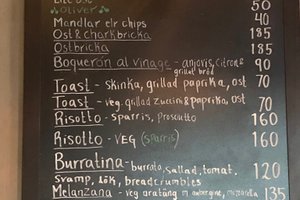 OLIVER 50
Mandlar elr chips 40
Ost & charkbricka 185
Ostbricka 185
Boqueron al vinage - anjovis, citron & grillat bröd 90
Toast - skinka, grillad paprika, ost 70
Toast - veg. grillad zuccini & paprika, ost 70
Risotto - sparris, proscutto 160
Risotto - VEG (sparris) 160
Burratina - burrata, sallad, tomat, 120
svamp, lök, breadcrumbles
Melanzana - veg gratäng m aubergine, mozzarella 135